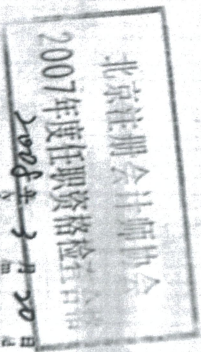 北京注册会计师协会
2007年度任职资格检查合格
2008年5月20日
y m d